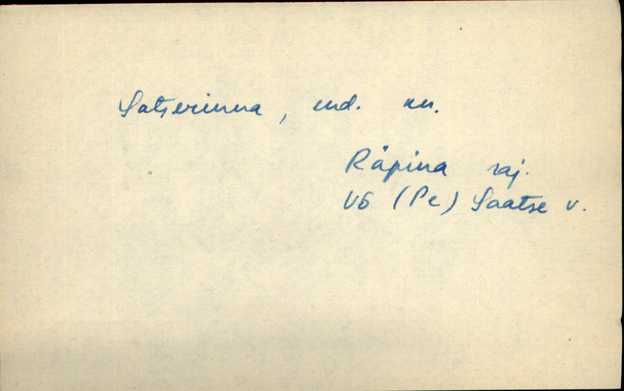 Satserinna, end. kn.
Räpina raj.
Võ (Pe) Saatse v.